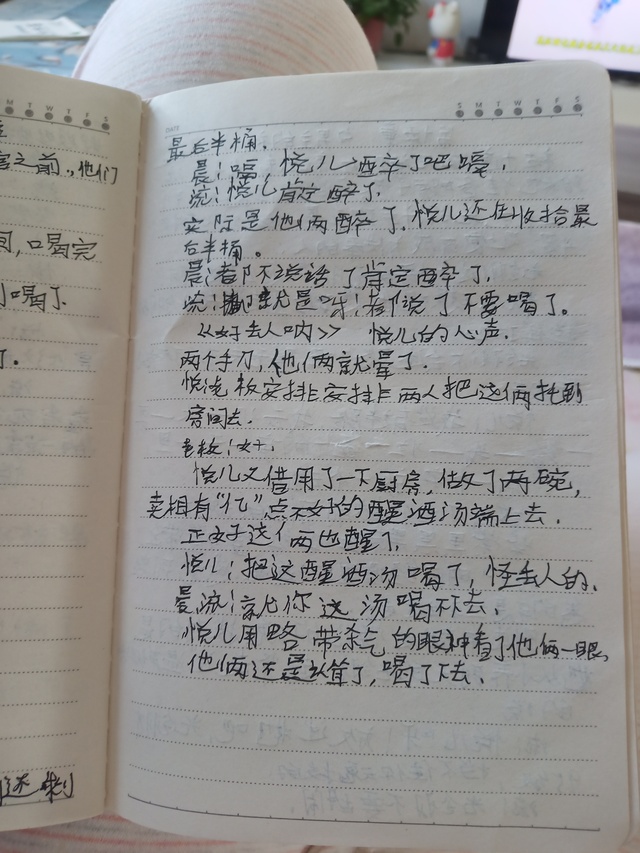 害之前,他们
间,喝完
喝了.
了.
还来
最后半桶.
晨:嗝,悦儿醉了吧嗳.
流:悦儿肯定醉了.
实际是他俩醉了.悦儿还在收拾最
后半桶。
晨:都不说话了肯定醉了.
流:就是呀;都说了不要喝了。
《好丢人呐》 悦儿的心声.
两个手刀,他俩就晕了.
悦浼板安排安排两人把这俩扥到
房间去.
老板:好.
悦儿又借用了一下厨房,做了两碗,
卖相有“亿”点不好的醒酒汤端上去.
正好这俩也醒了.
悦儿:把这醒酒汤喝了,怪丢人的.
晨流:就你这汤喝不去.
悦儿用略带杀气的眼神看了他俩一眼,
他俩还是认算了,喝了下去.